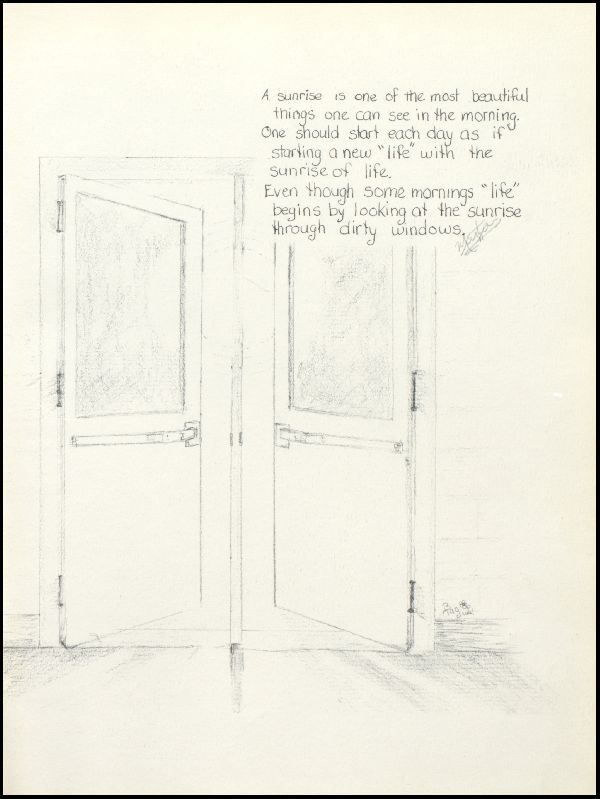 A sunrise is one of the most beautiful
things one can see in the morning.
One should start each day as if
starting a new "life" with the
sunrise of life.
Even though some mornings "life"
begins by looking at the sunrise
through dirty windows.